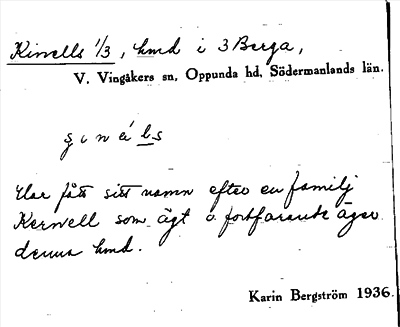 Kirwells 1/3, hmd i 3 Berga,
V. Vingåkers sn, Oppunda hd, Södermanlands län.
Har fått sitt namn efter en familj
Kerwell som ägt o. fortfarande äger
denna hmd.
Karin Bergström 1936.